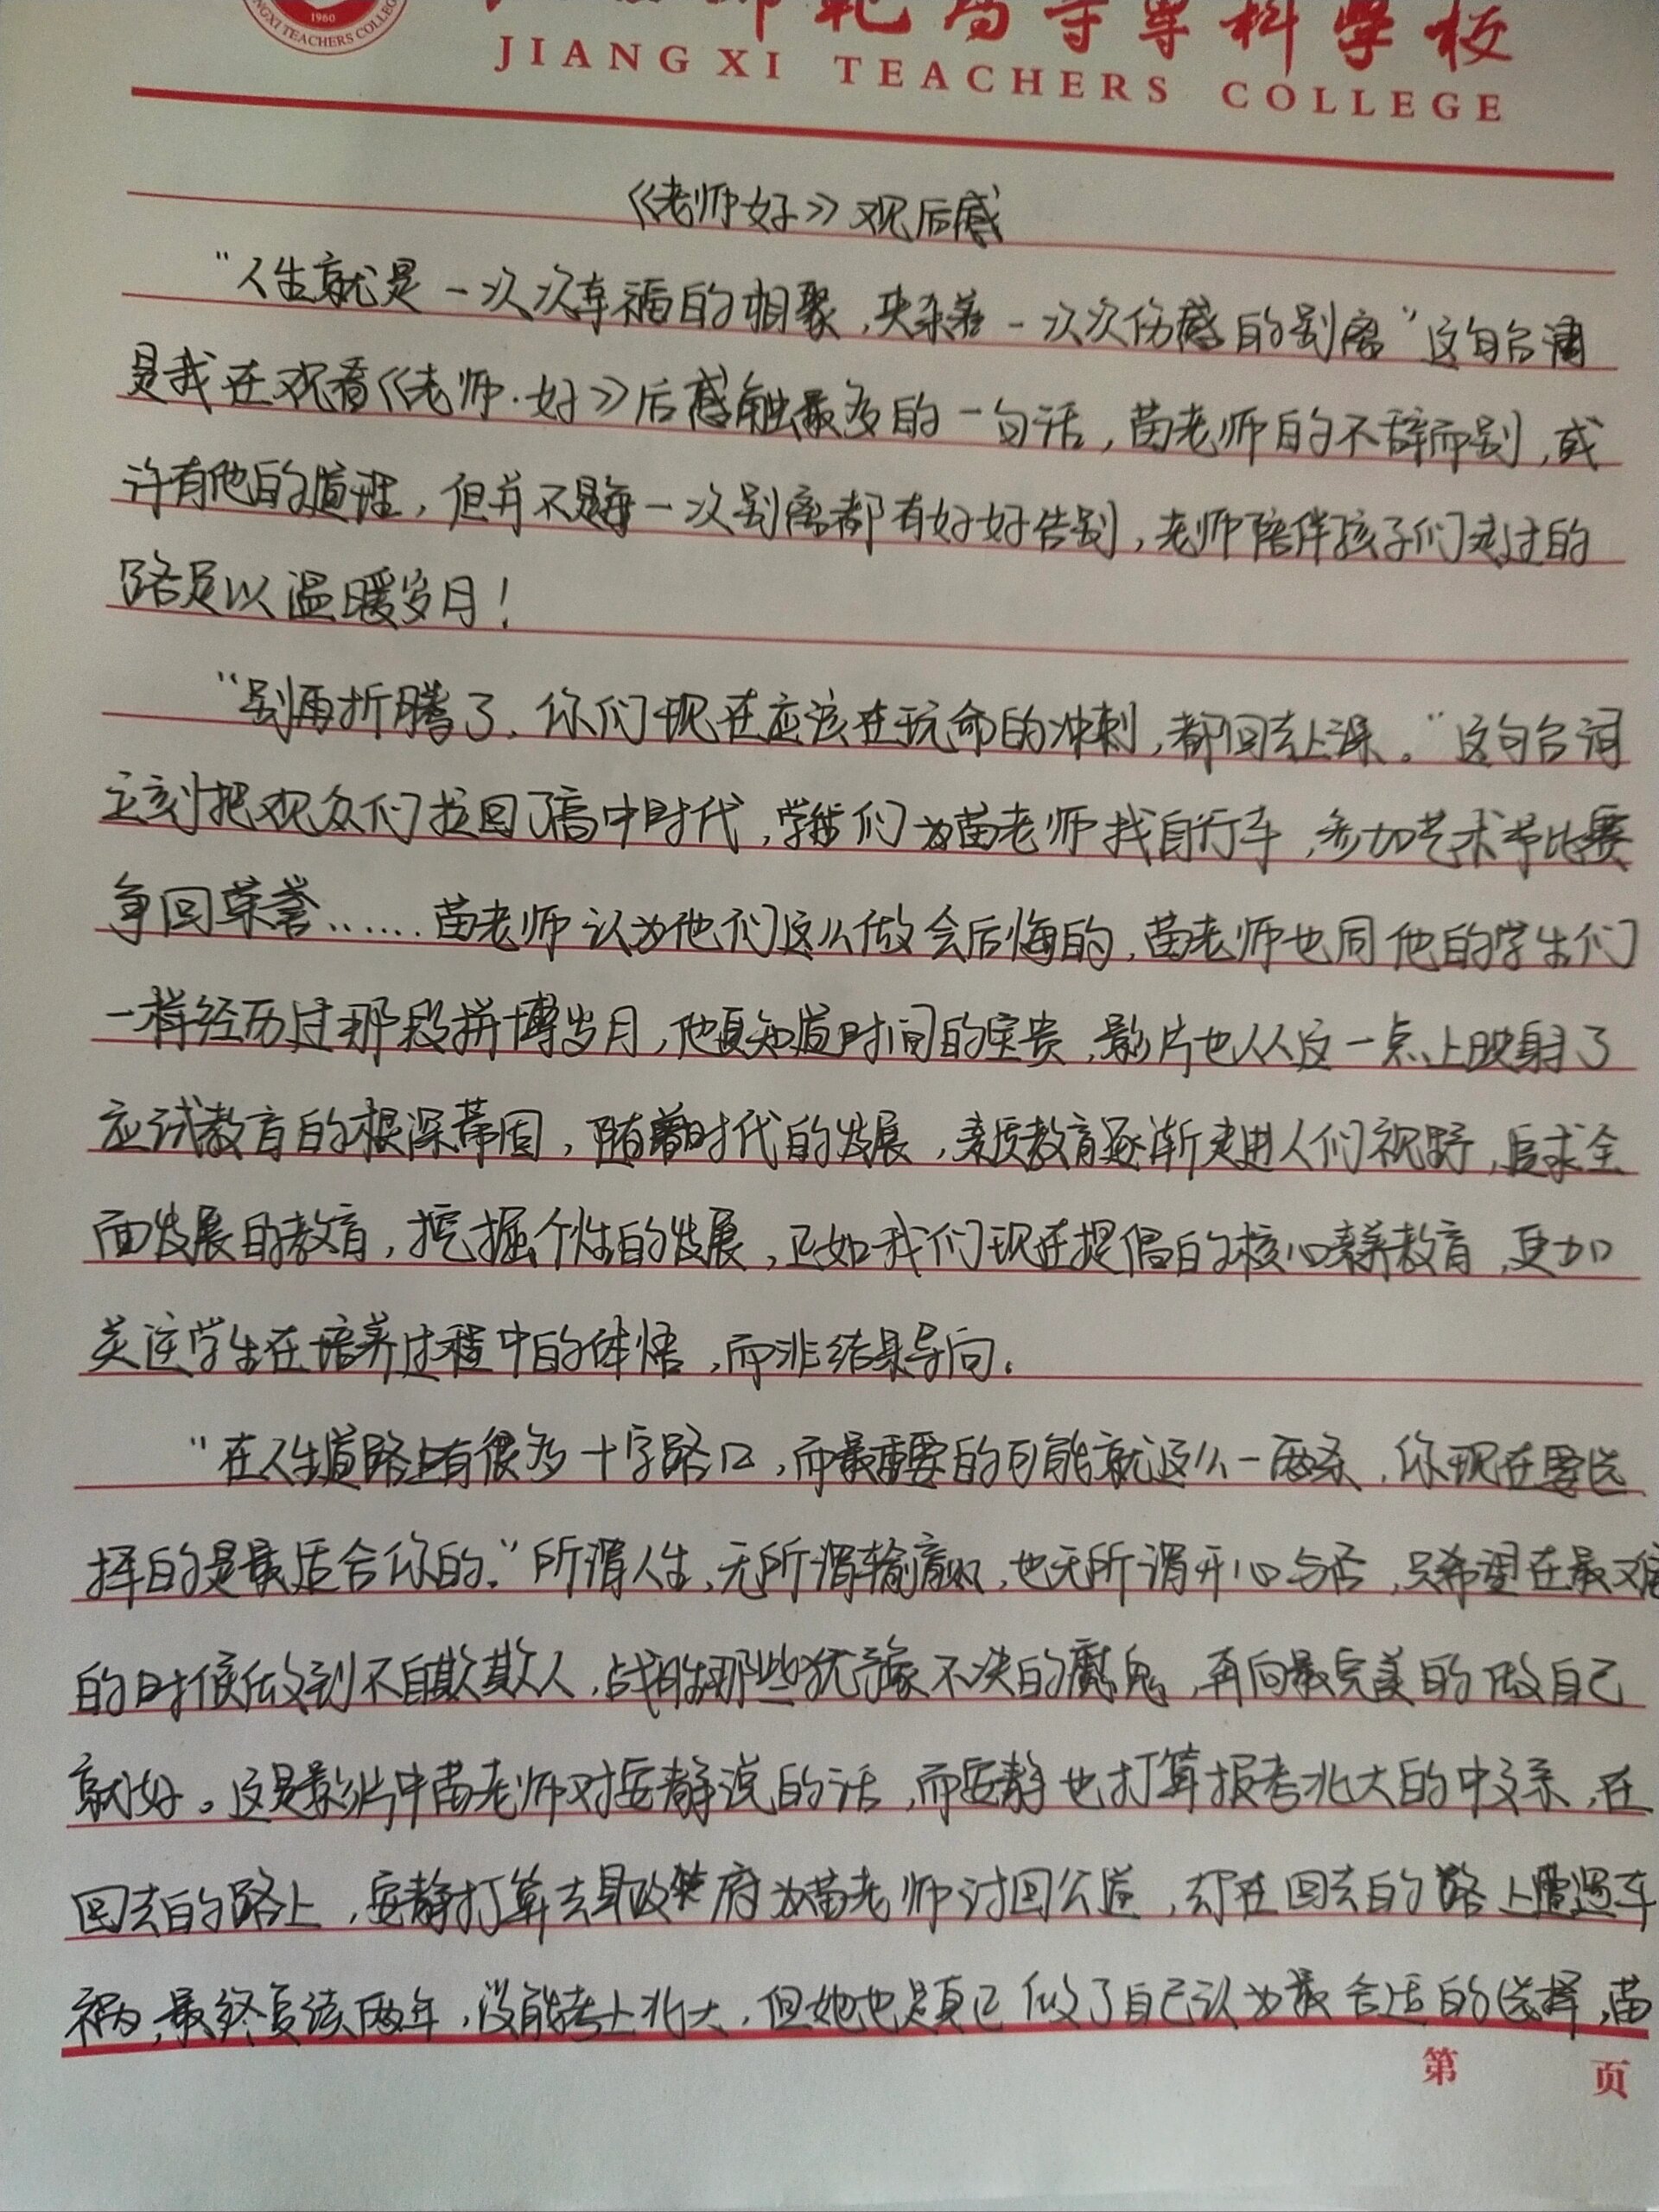 1960
JIANGXI TEACHERS COLLEGE
范高等专科学校
JIANGXI TEACHERS COLLEGE
《老师好》观后感
“人生就是一次次幸福的相聚，夹杂着一次次伤感的别离”这句台词
是我在观看《老师·好》后感触最多的一句话，苗老师的不辞而别，或
许有他的道理，但并不是每一次别离都有好好告别，老师陪伴孩子们走过的
路足以温暖岁月！
“别再折腾了，你们现在应该在玩命的冲刺，都回去上课。”这句台词
立刻把观众们拉回了高中时代，学生们为苗老师找自行车，参加艺术节比赛
争回荣誉……苗老师认为他们这么做会后悔的，苗老师也同他的学生们
一样经历过那段拼博岁月，他更知道时间的宝贵，影片也从这一点上映射了
应试教育的根深蒂固，随着时代的发展，素质教育逐渐走进人们视野，追求全
面发展的教育，挖掘个性的发展，正如我们现在提倡的核心素养教育，更加
关注学生在培养过程中的体悟，而非结果导向。
“在人生道路上有很多十字路口，而最重要的可能就这么一两条，你现在要选
择的是最适合你的。”所谓人生，无所谓输赢，也无所谓开心与否，只希望在最难
的时候做到不自欺欺人，战胜那些犹豫不决的魔鬼，再向最完美的做自己
就好。这是影片中苗老师对安静说的话，而安静也打算报考北大的中文系，在
回去的路上，安静打算去县政府为苗老师讨回公道，却在回去的路上遭遇车
祸，最终复读两年，没能考上北大，但她也是真正做了自己认为最合适的选择，苗
第 页